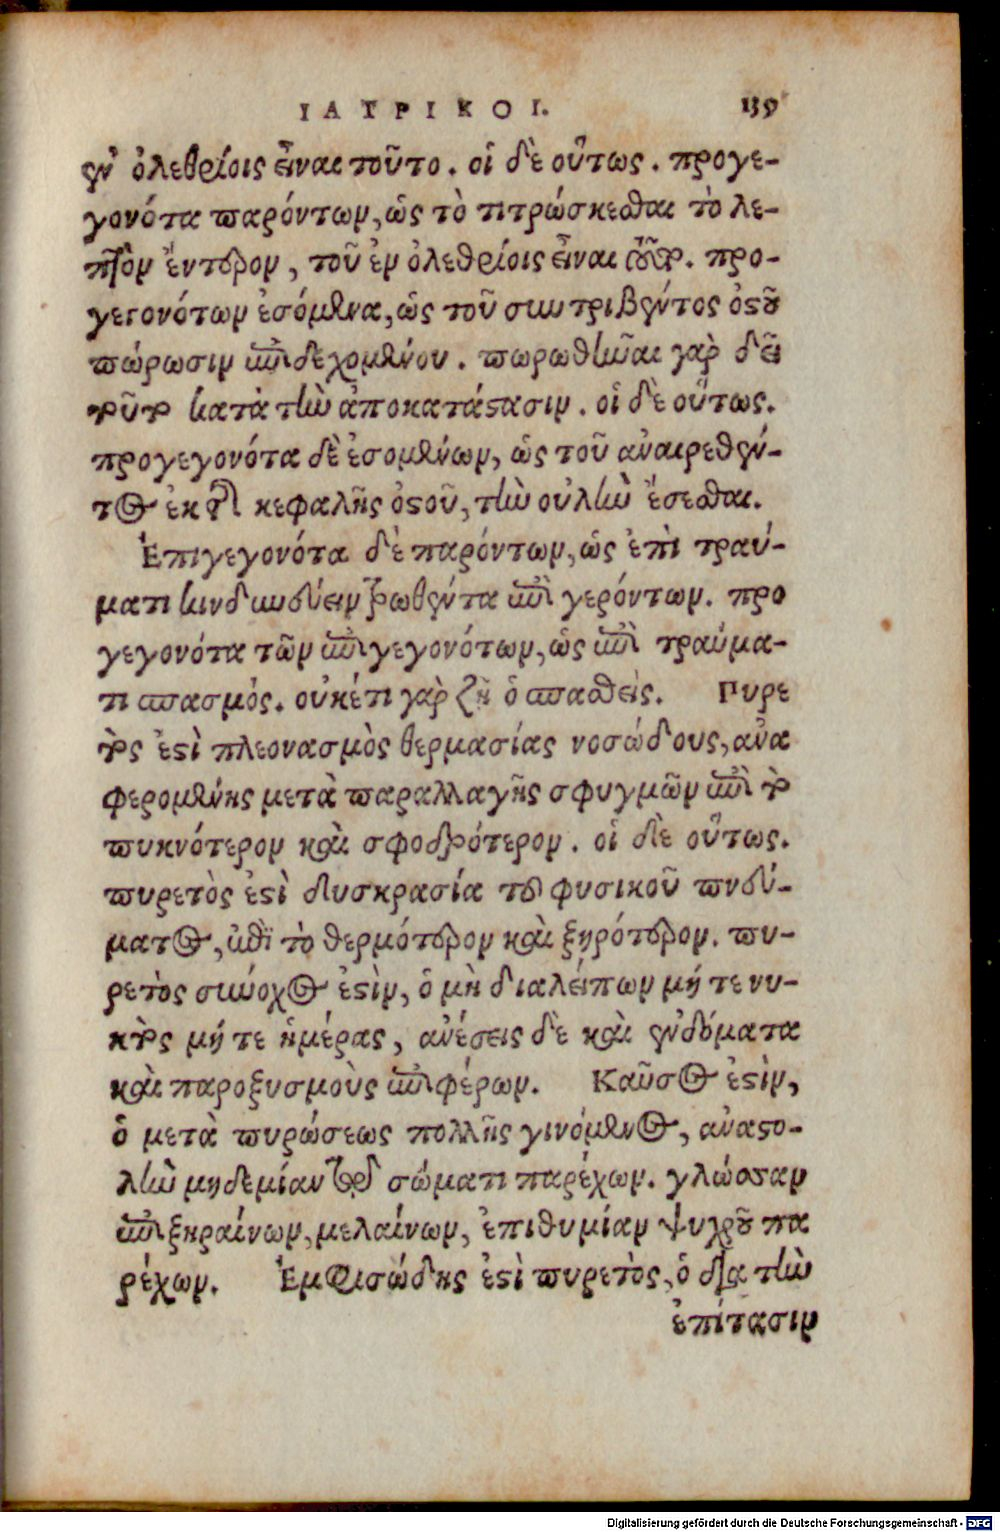 ΙΑΤΡΙΚΟΙ. 139
ἐν ὀλεθρίοις εἶναι τοῦτο. οἱ δὲ οὕτως. προγε-
γονότα παρόντων, ὡς τὸ τιτρώσκεσθαι τὸ λε-
πτὸν ἔντερον, τοῦ ἐν ὀλεθρίοις εἶναι τοῦτο. προ-
γεγονότων ἐσόμενα, ὡς τοῦ συντριβέντος ὀστοῦ
πώρωσιν ἐπιδεχομένου. πωρωθῆναι γὰρ δεῖ
τοῦτο κατὰ τὴν ἀποκατάστασιν. οἱ δὲ οὕτως.
προγεγονότα δὲ ἐσομένων, ὡς τοῦ αναιρεθέν-
τος ἐκ τῆς κεφαλῆς ὀστοῦ, τὴν οὐλὴν ἔσεσθαι.
Ἐπιγεγονότα δὲ παρόντων, ὡς ἐπὶ τραύ-
ματι κινδυνεύειν τρωθέντα ἐπὶ γερόντων. προ
γεγονότα τῶν ἐπιγεγονότων, ὡς ἐπὶ τραύμα-
τι σπασμός. οὐκέτι γὰρ ζῇ ὁ σπασθείς. Πυρε
τός ἐστὶ πλεονασμὸς θερμασίας νοσώδους, ανα
φερομένης μετὰ παραλλαγῆς σφυγμῶν ἐπὶ τὸ
πυκνότερον καὶ σφοδρότερον. οἱ δὲ οὕτως.
πυρετὸς ἐστὶ δυσκρασία τοῦ φυσικοῦ πνεύ-
ματος, ἐπὶ τὸ θερμότερον καὶ ξηρότερον. πυ-
ρετὸς σύνοχος ἐστὶν, ὁ μὴ διαλείπων μή τε νυ-
κτὸς μή τε ἡμέρας, ανέσεις δὲ καὶ ἐνδόματα
καὶ παροξυσμοὺς ἐπιφέρων. Καῦσος ἐστὶν,
ὁ μετὰ πυρώσεως πολλῆς γινόμενος, αναστο-
λὴν μηδεμίαν τῷ σώματι παρέχων. γλώσσαν
ἐπιξηραίνων, μελαίνων, ἐπιθυμίαν ψυχροῦ πα
ρέχων. Ἐμφυσώδης ἐστὶ πυρετὸς, ὁ διὰ τὴν
ἐπίτασιν
Digitalisierung gefördert durch die Deutsche Forschungsgemeinschaft - DFG